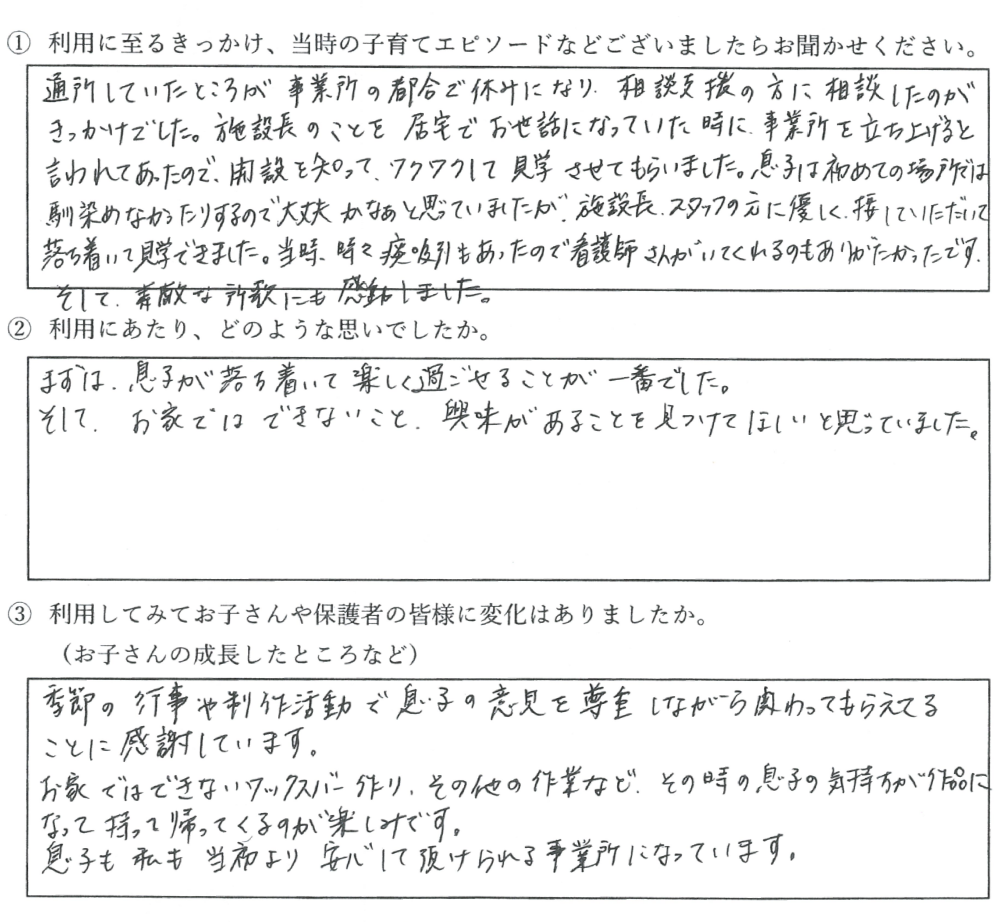 ① 利用に至るきっかけ、当時の子育てエピソードなどございましたらお聞かせください。
通所していたところが 事業所の都合で休みになり、相談支援の方に相談したのが
きっかけでした。施設長のことを 居宅でお世話になっていた時に、事業所を立ち上げると
言われてあったので、開設を知って、ワクワクして見学させてもらいました。息子は初めての場所では
馴染めなかったりするので大丈夫かなぁと思っていましたが、施設長、スタッフの方に優しく、接していただいて
落ち着いて見学できました。当時、時々痰吸引もあったので看護師さんがいてくれるのもありがたかったです。
そして、素敵な所歌にも感動しました。
② 利用にあたり、どのような思いでしたか。
まずは、息子が落ち着いて楽しく過ごせることが一番でした。
そして、お家ではできないこと、興味があることを見つけてほしいと思っていました。
③ 利用してみてお子さんや保護者の皆様に変化はありましたか。
（お子さんの成長したところなど）
季節の行事や制作活動で息子の意見を尊重しながら関わってもらえてる
ことに感謝しています。
お家ではできないワックスバー作り、その他の作業など、その時の息子の気持ちが作品に
なって持って帰ってくるのが楽しみです。
息子も私も当初より安心して預けられる事業所になっています。